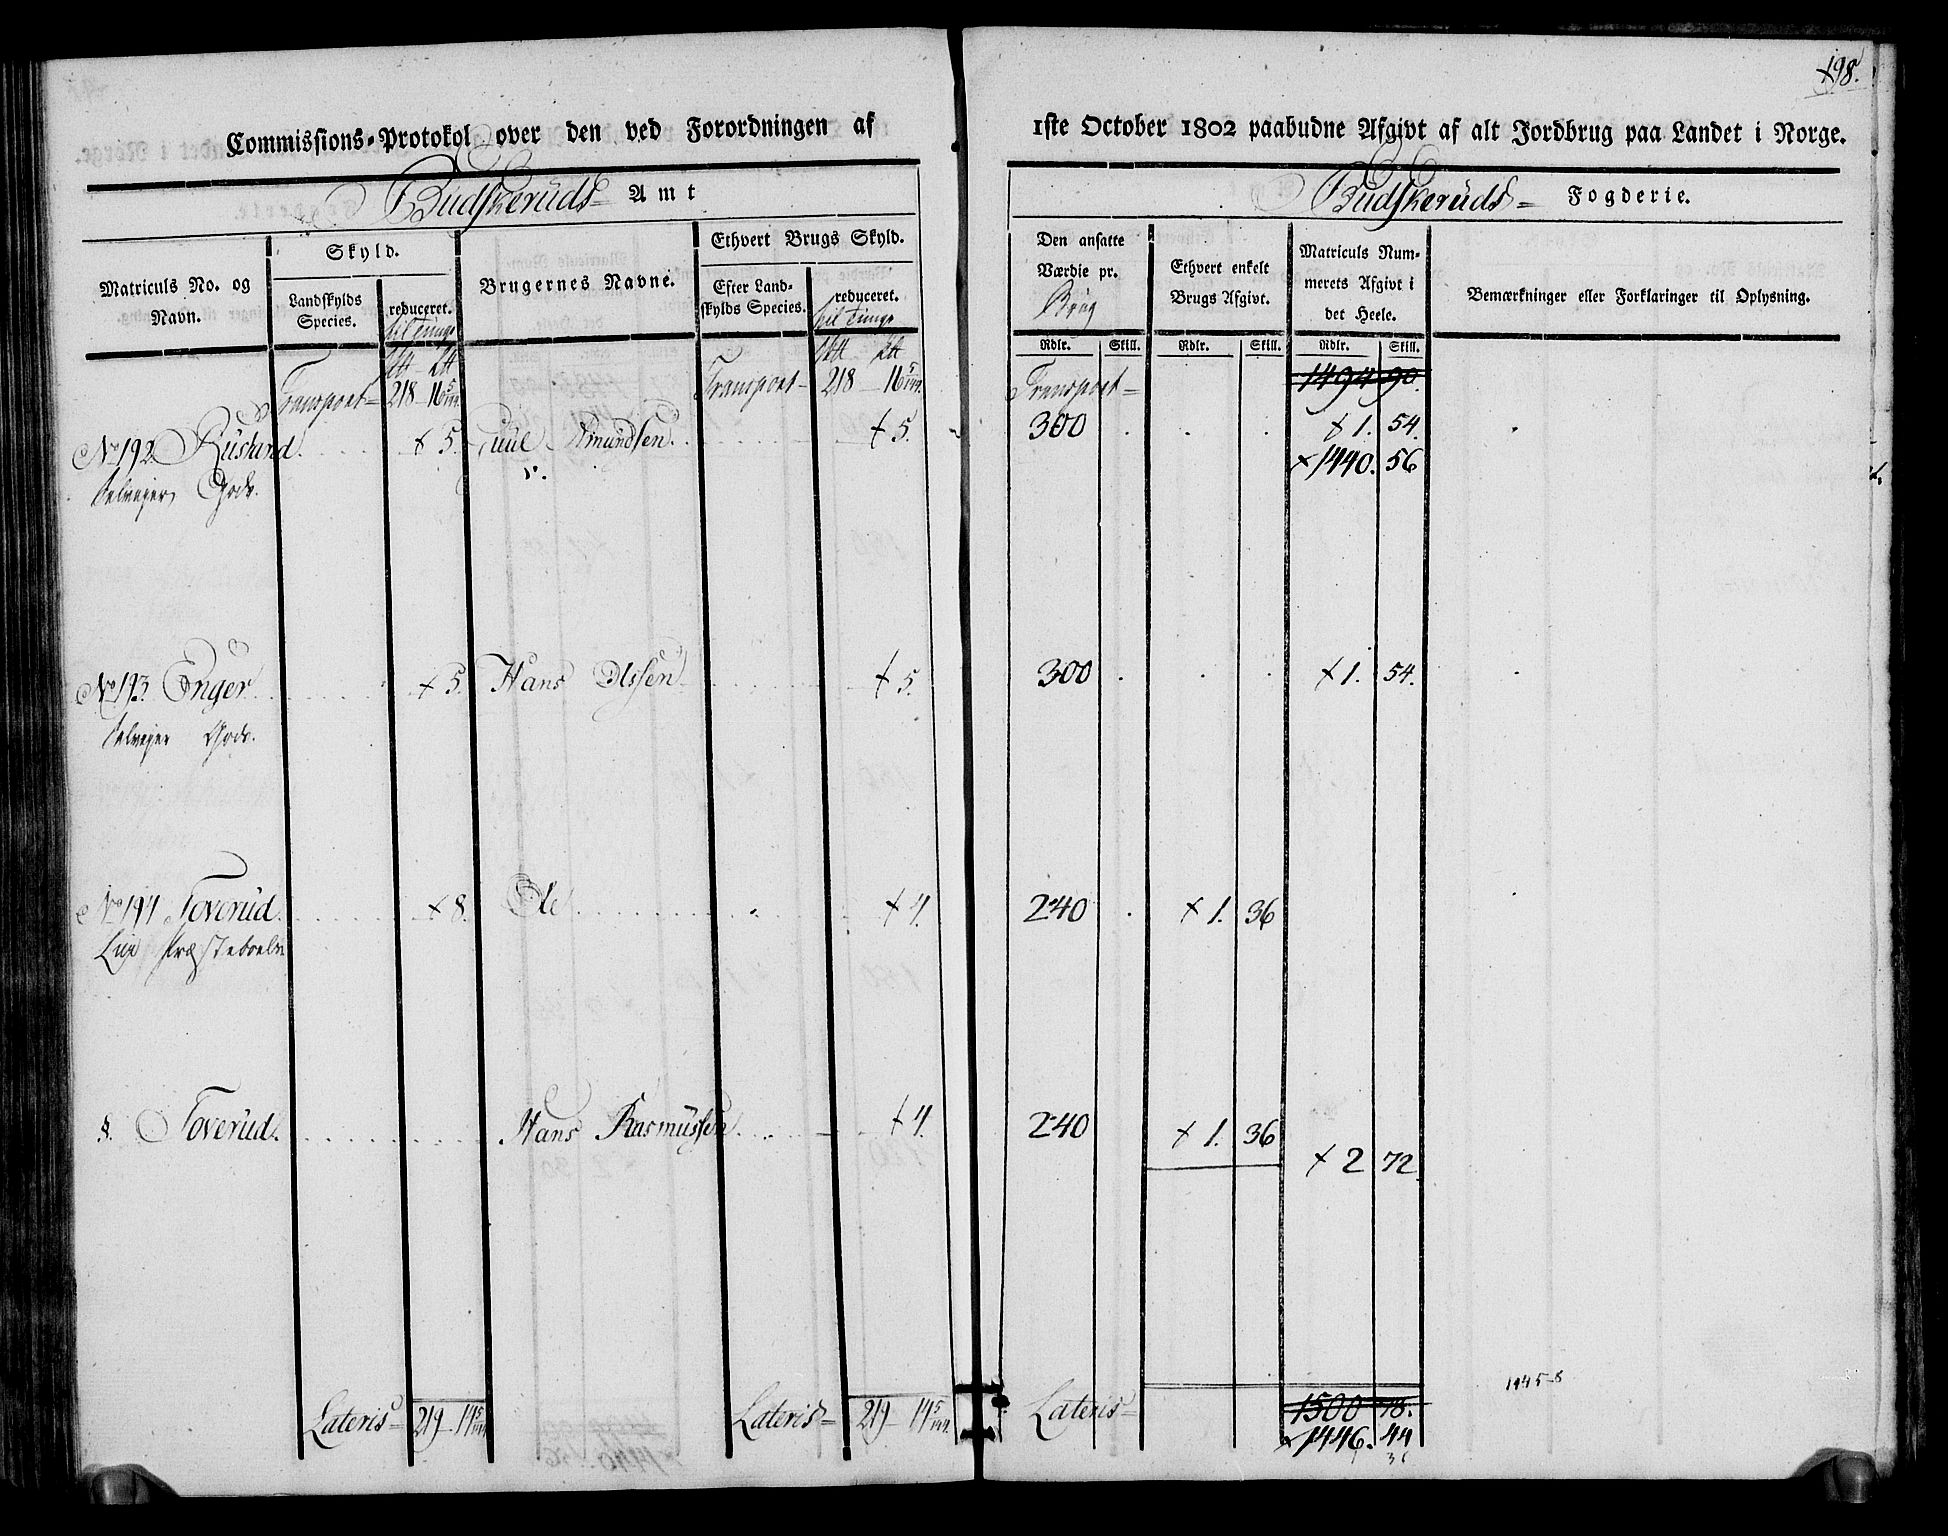 198.
Commissions-Protokol over den ved Forordningen af 1ste October 1802 paabudne Afgivt af alt Jordbrug paa Landet i Norge.
Budskeruds Amt
Budskeruds Fogderie.
Matriculs No. og Navn.
Skyld.
Landskylds Species.
reduceret.
til Tunge
Brugernes Navne.
Ethvert Brugs Skyld.
Efter Landskylds Species.
reduceret.
til Tunge
Den ansatte Værdie pr.
Brug
Ethvert enkelt Brugs Afgivt.
Matriculs Nummerets Afgivt i det Heele.
Bemærkninger eller Forklaringer til Oplysning.
Rdlr. Skill. Rdlr. Skill. Rdlr. Skill.
Transport 218 16 Transport 218 16 Transport 1494 90.
No 192 Ruslund 5. Juul Amundsen 5. 300 1. 54.
1440. 56
Selveyer Gods.
No 193. Enger 5. Hans Olssen 5. 300 1. 54.
Selveyer Gods.
No 194 Foverud 8. Ole 4. 240 1. 36
Lier Præsteboelin
§. Foverud. Hans Rasmussen 4. 240 1. 36
2 72
1445-8
Lateris 219 14 Lateris 219 14 Lateris 1500 78.
1446. 44
36